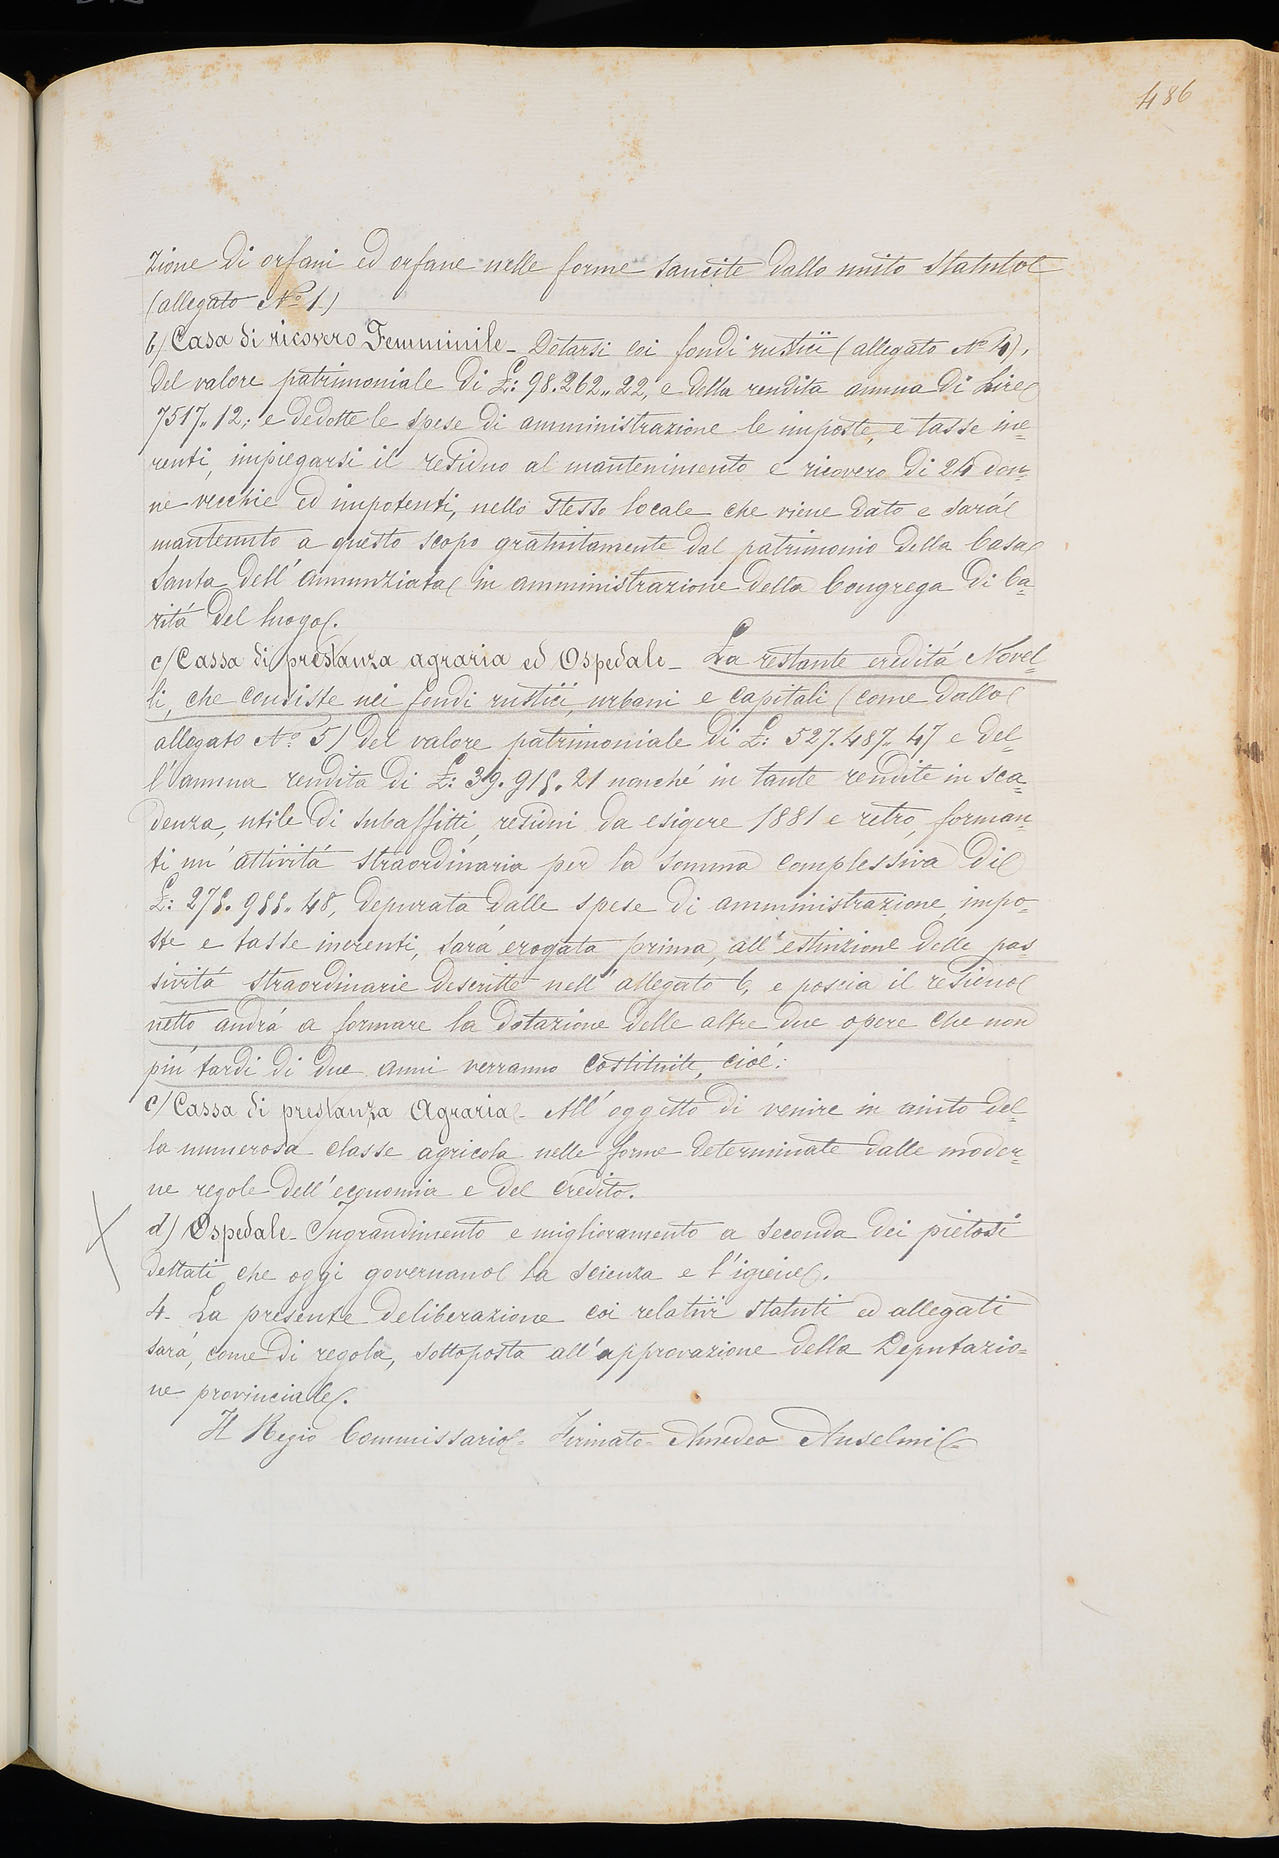 486
zione di orfani ed orfane nelle forme sancite dallo unito Statuto
(allegato N.º 1.)
b/ Casa di ricovero Femminile_ Dotarsi coi fondi rustici (allegato N.º 4),
del valore patrimoniale di £: 98.262,,22, e della rendita annua di Lire
7517,,12; e dedotte le spese di amministrazione le imposte, e tasse ine=
renti, impiegarsi il residuo al mantenimento e ricovero di 24 don=
ne vecchie ed impotenti, nello stesso locale che viene dato e sarà
mantenuto a questo scopo gratuitamente dal patrimonio della Casa
Santa dell'Annunziata in amministrazione della Congrega di Ca=
rità del luogo.
c/ Cassa di prestanza agraria ed Ospedale_ La restante eredità Novel=
li, che consiste nei fondi rustici, urbani e capitali (come dallo
allegato N.º 5) del valore patrimoniale di £: 527.487,,47 e del=
l'annua rendita di £: 39.918,,21 nonché in tante rendite in sca=
denza, utile di subaffitti, residui da esigere 1881 e retro, forman=
ti un'attività straordinaria per la somma complessiva di
£: 278.988,,48, depurata dalle spese di amministrazione, impo=
ste e tasse inerenti, sarà erogata prima, all'estinzione delle pas
sività straordinarie descritte nell'allegato 6, e poscia il residuo
netto andrà a formare la dotazione delle altre due opere che non
più tardi di due anni verranno costituite, cioè:
c/ Cassa di prestanza Agraria_ All'oggetto di venire in aiuto del=
la numerosa classe agricola nelle forme determinate dalle moder=
ne regole dell'economia e del credito.
d/ Ospedale_ Ingrandimento e miglioramento a seconda dei pietosi
dettati che oggi governano la scienza e l'igiene.
4_ La presente deliberazione coi relativi statuti ed allegati
sarà, come di regola, sottoposta all'approvazione della Deputazio=
ne provinciale.
Il Regio Commissario= Firmato= Amedeo Anselmi=